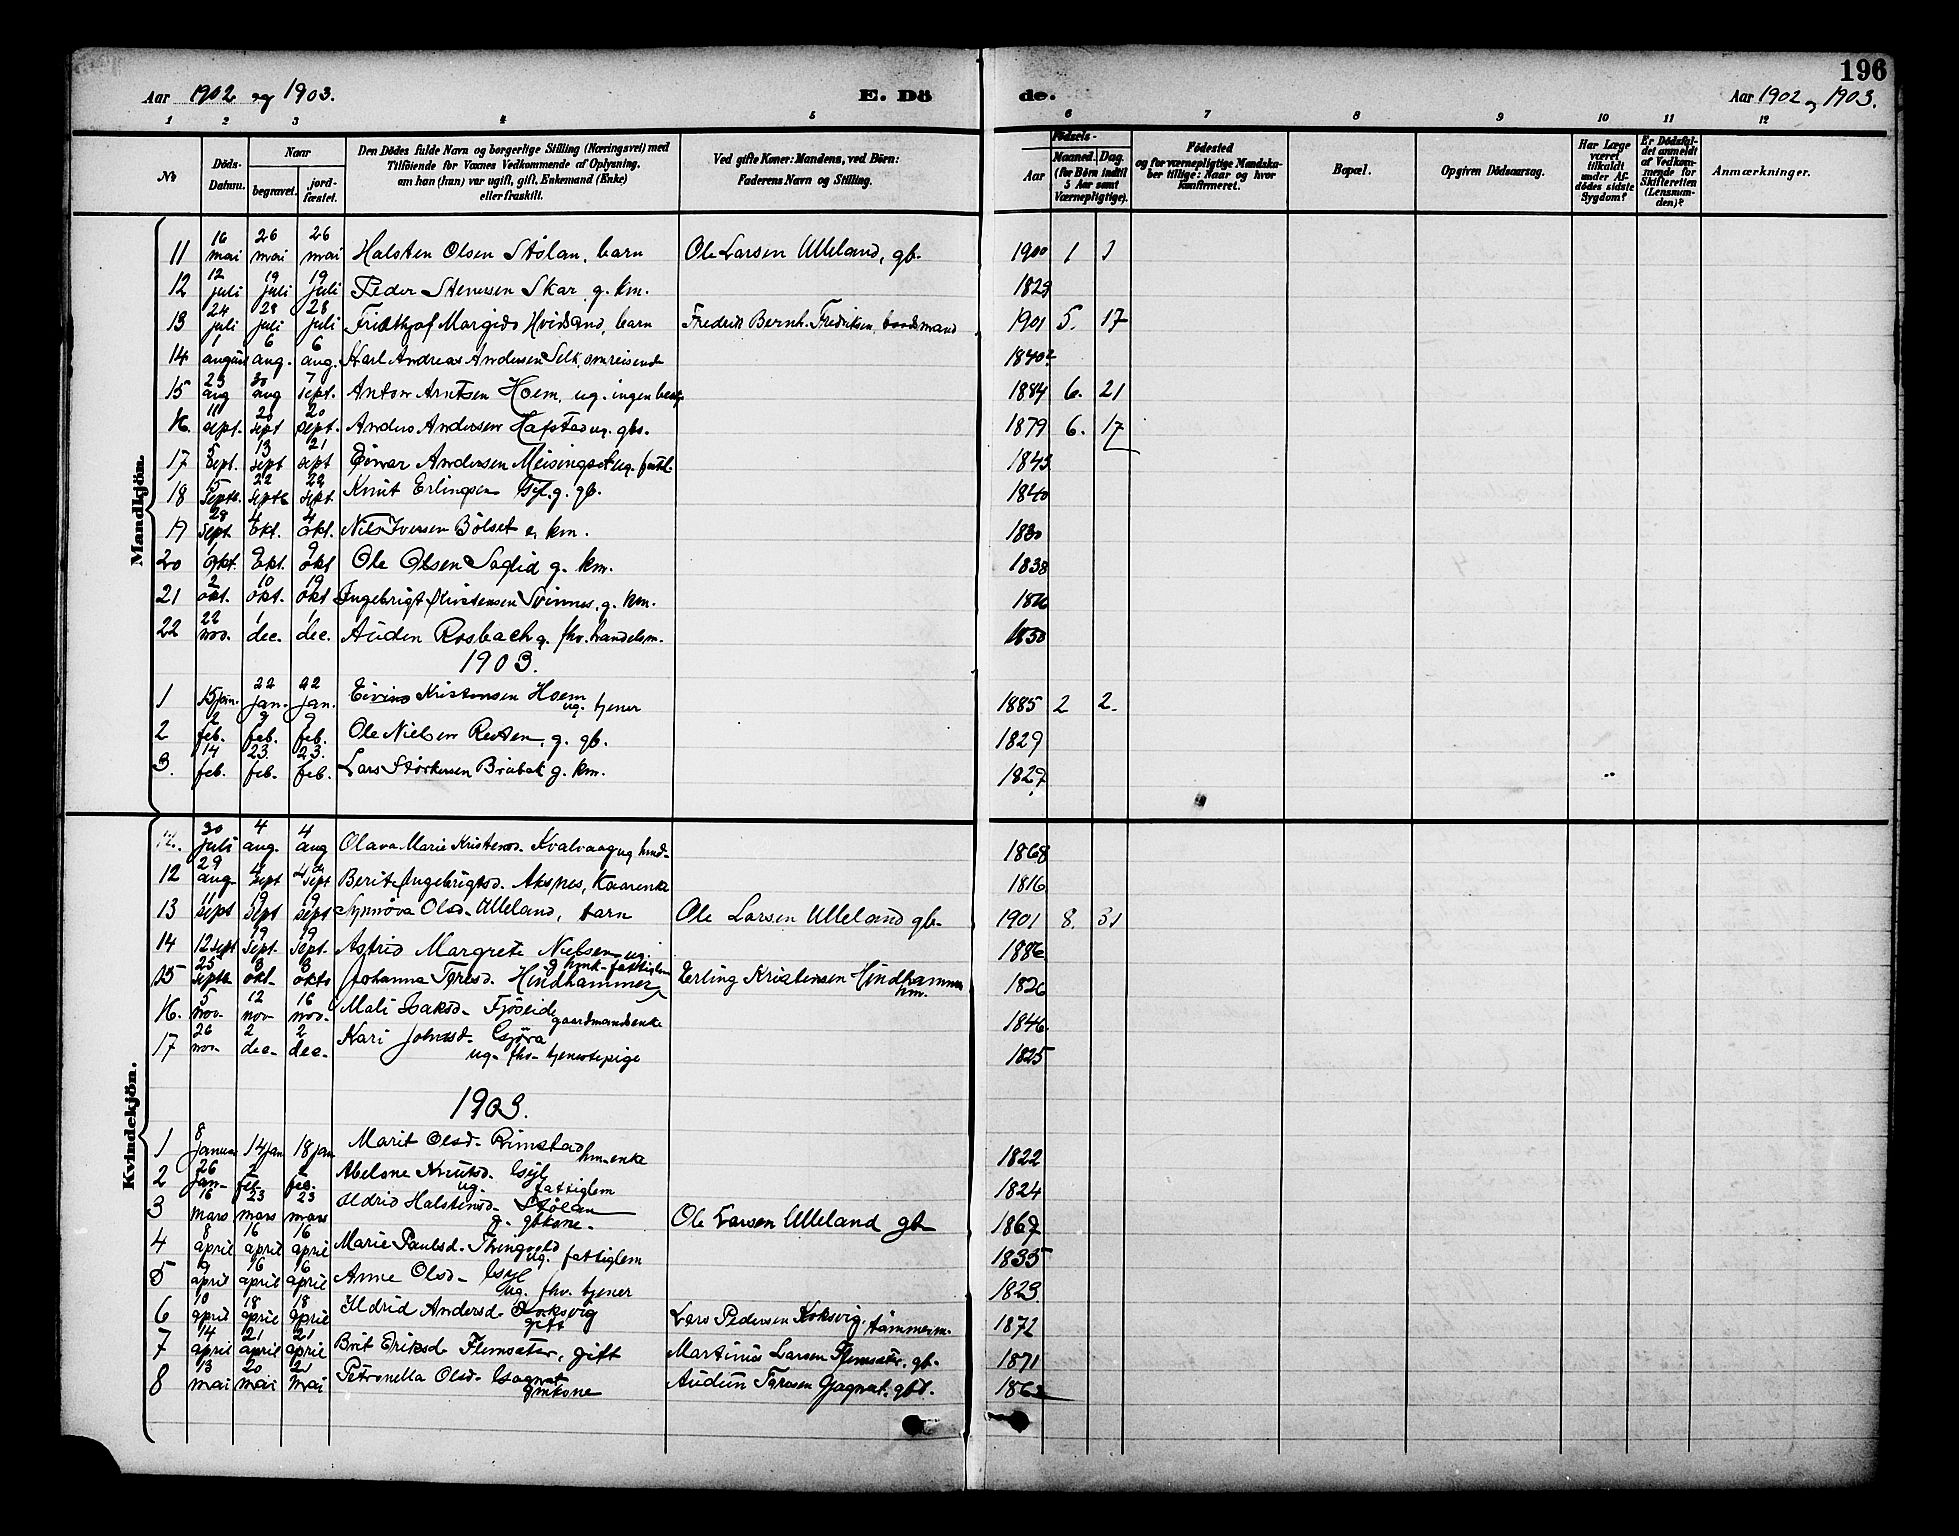 196
Aar 1902 og 1903. E. Dö de. Aar 1902 og 1903.
1 2 3 4 5 6 7 8 9 10 11 12
No Döds-Datum. Naar begravet. jord-fæstet. Den Dödes fulde Navn og borgerlige Stilling (Næringsvei) med Tilföiende for Voxnes Vedkommende af Oplysning, om han (hun) var ugift, gift, Enkemand (Enke) eller fraskilt. Ved gifte Koner: Mandens, ved Börn: Faderens Navn og Stilling. Födsels- Aar Maaned. Dag. (for Börn indtil 5 Aar samt Værnepligtige). Födested og for værnepligtige Mandskaber tillige: Naar og hvor konfirmeret. Bopæl. Opgiven Dödsaarsag. Har Læge været tilkaldt under Afdödes sidste Sygdom? Er Dödsfaldet anmeldt af Vedkommende for Skifteretten (Lensmanden)? Anmærkninger.
Mandkjön.
11 16 mai 26 mai 26 mai Halsten Olsen Stølan, barn Ole Larsen Ulleland, gb. 1900 1 1
12 12 juli 19 juli 19 juli Peder Stenersen Skar g. km. 1829
13 24 juli 28 juli 28 juli Fridthjof Margido Hvidsand, barn Fredrik Bernh. Fredriksen, baadsmand 1901 5. 17
14 1 august 6 aug. 6 aug. Karl Andreas Andersen Selk, omreisende 1840
15 23 aug 30 aug 7 sept. Anton Arntsen Hoem, ug. ingen besk. 1884 6. 21
16. 11 sept. 20 sept 20 sept. Anders Andersen Hafstad ug. gbs. 1879 6. 17
17 5 sept. 13 sept 21 sept Einar Andersen Meisingset ug. fattl. 1843
18 15 septb. 22 septb 22 sept. Knut Erlingsen Gyl. g. gb. 1840
19 28 sept 4 okt. 4 okt. Nils Iversen Bölset e. km. 1830
20 1 okt. 9 okt. 9 okt Ole Olsen Saglid g. km. 1838
21 2 okt. 10 okt. 19 okt Ingebrigt Christensen Svinnes, g. hm. 1816
22 22 nov. 1 dec. 1 dec. Auden Rosbach g. fhv. handelsm. 1850
1903.
1 15 jan. 22 jan. 22 jan. Eivind Kristensen Hoem
ug. tjener 1885 2 2.
2 2 feb. 9 feb. 9 feb. Ole Nielsen Reiten, g. gb. 1829
3. 14 feb. 23 feb. 23. feb. Lars Størkersen Brubak g. km. 1827
Kvindekjön.
30 juli 4 aug. 4 aug Olava Marie Kristensd. Kvalvaag ug hmd. 1868
12 29 aug. 4 sept 4 sept Berit Ingebrigtsd. Aksnes, Kaarenke 1816
13 11 sept 19 sept 19 sept Synnöva Olsd. Ulleland, barn Ole Larsen Ulleland gb. 1901 8. 31
14 12 sept 19 sept. 19 sept. Astrid Margrete Nielsen ug. 1886
15 25 septb 3 okt. 8 okto Johanna Toresd. Hindhammer g. hmk. fattiglem Erling Kristensen Hindhammer hm. 1826
16. 5 nov. 12 nov 16 nov. Mali Isaksd. Fjöseide
gaardmandsenke 1846
17 26 nov. 2 dec. 2 dec. Kari Johnsd. Gjöra
ug. fhv. tjenestepige 1825
1903.
1 8 januar 14 jan 18 jan Marit Olsd. Rimstad
hm.enke 1822
2 26 jan. 2 feb. 2 feb. Abelone Knutsd. Gyl
ug. fattiglem 1824
3 16 mars 23 mars 23 mars Ildrid Halstensd. Stölan
g. gbkone. Ole Larsen Ulleland gb 1867
4 8 april 16 april 16 april Marie Paulsd. Thingvold
ug. fattiglem 1835
5 9 april 16 april 16 april Anne Olsd. Gyl
ug. fhv. tjener 1823.
6 10 april 18 april 18 april Ildrid Andersd. Koksvig
gift Lars Pedersen Koksvig, tömmerm. 1872
7 14 april 21 april 21 april Brit Eriksd. Flemsæter, gift Martinus Larsen Flemsæter, gb. 1871
8 13 mai 20 mai 20 mai Petronella Olsd. Gagnat
gmkone Audun Toresen Gjagnat. gbr. 1862